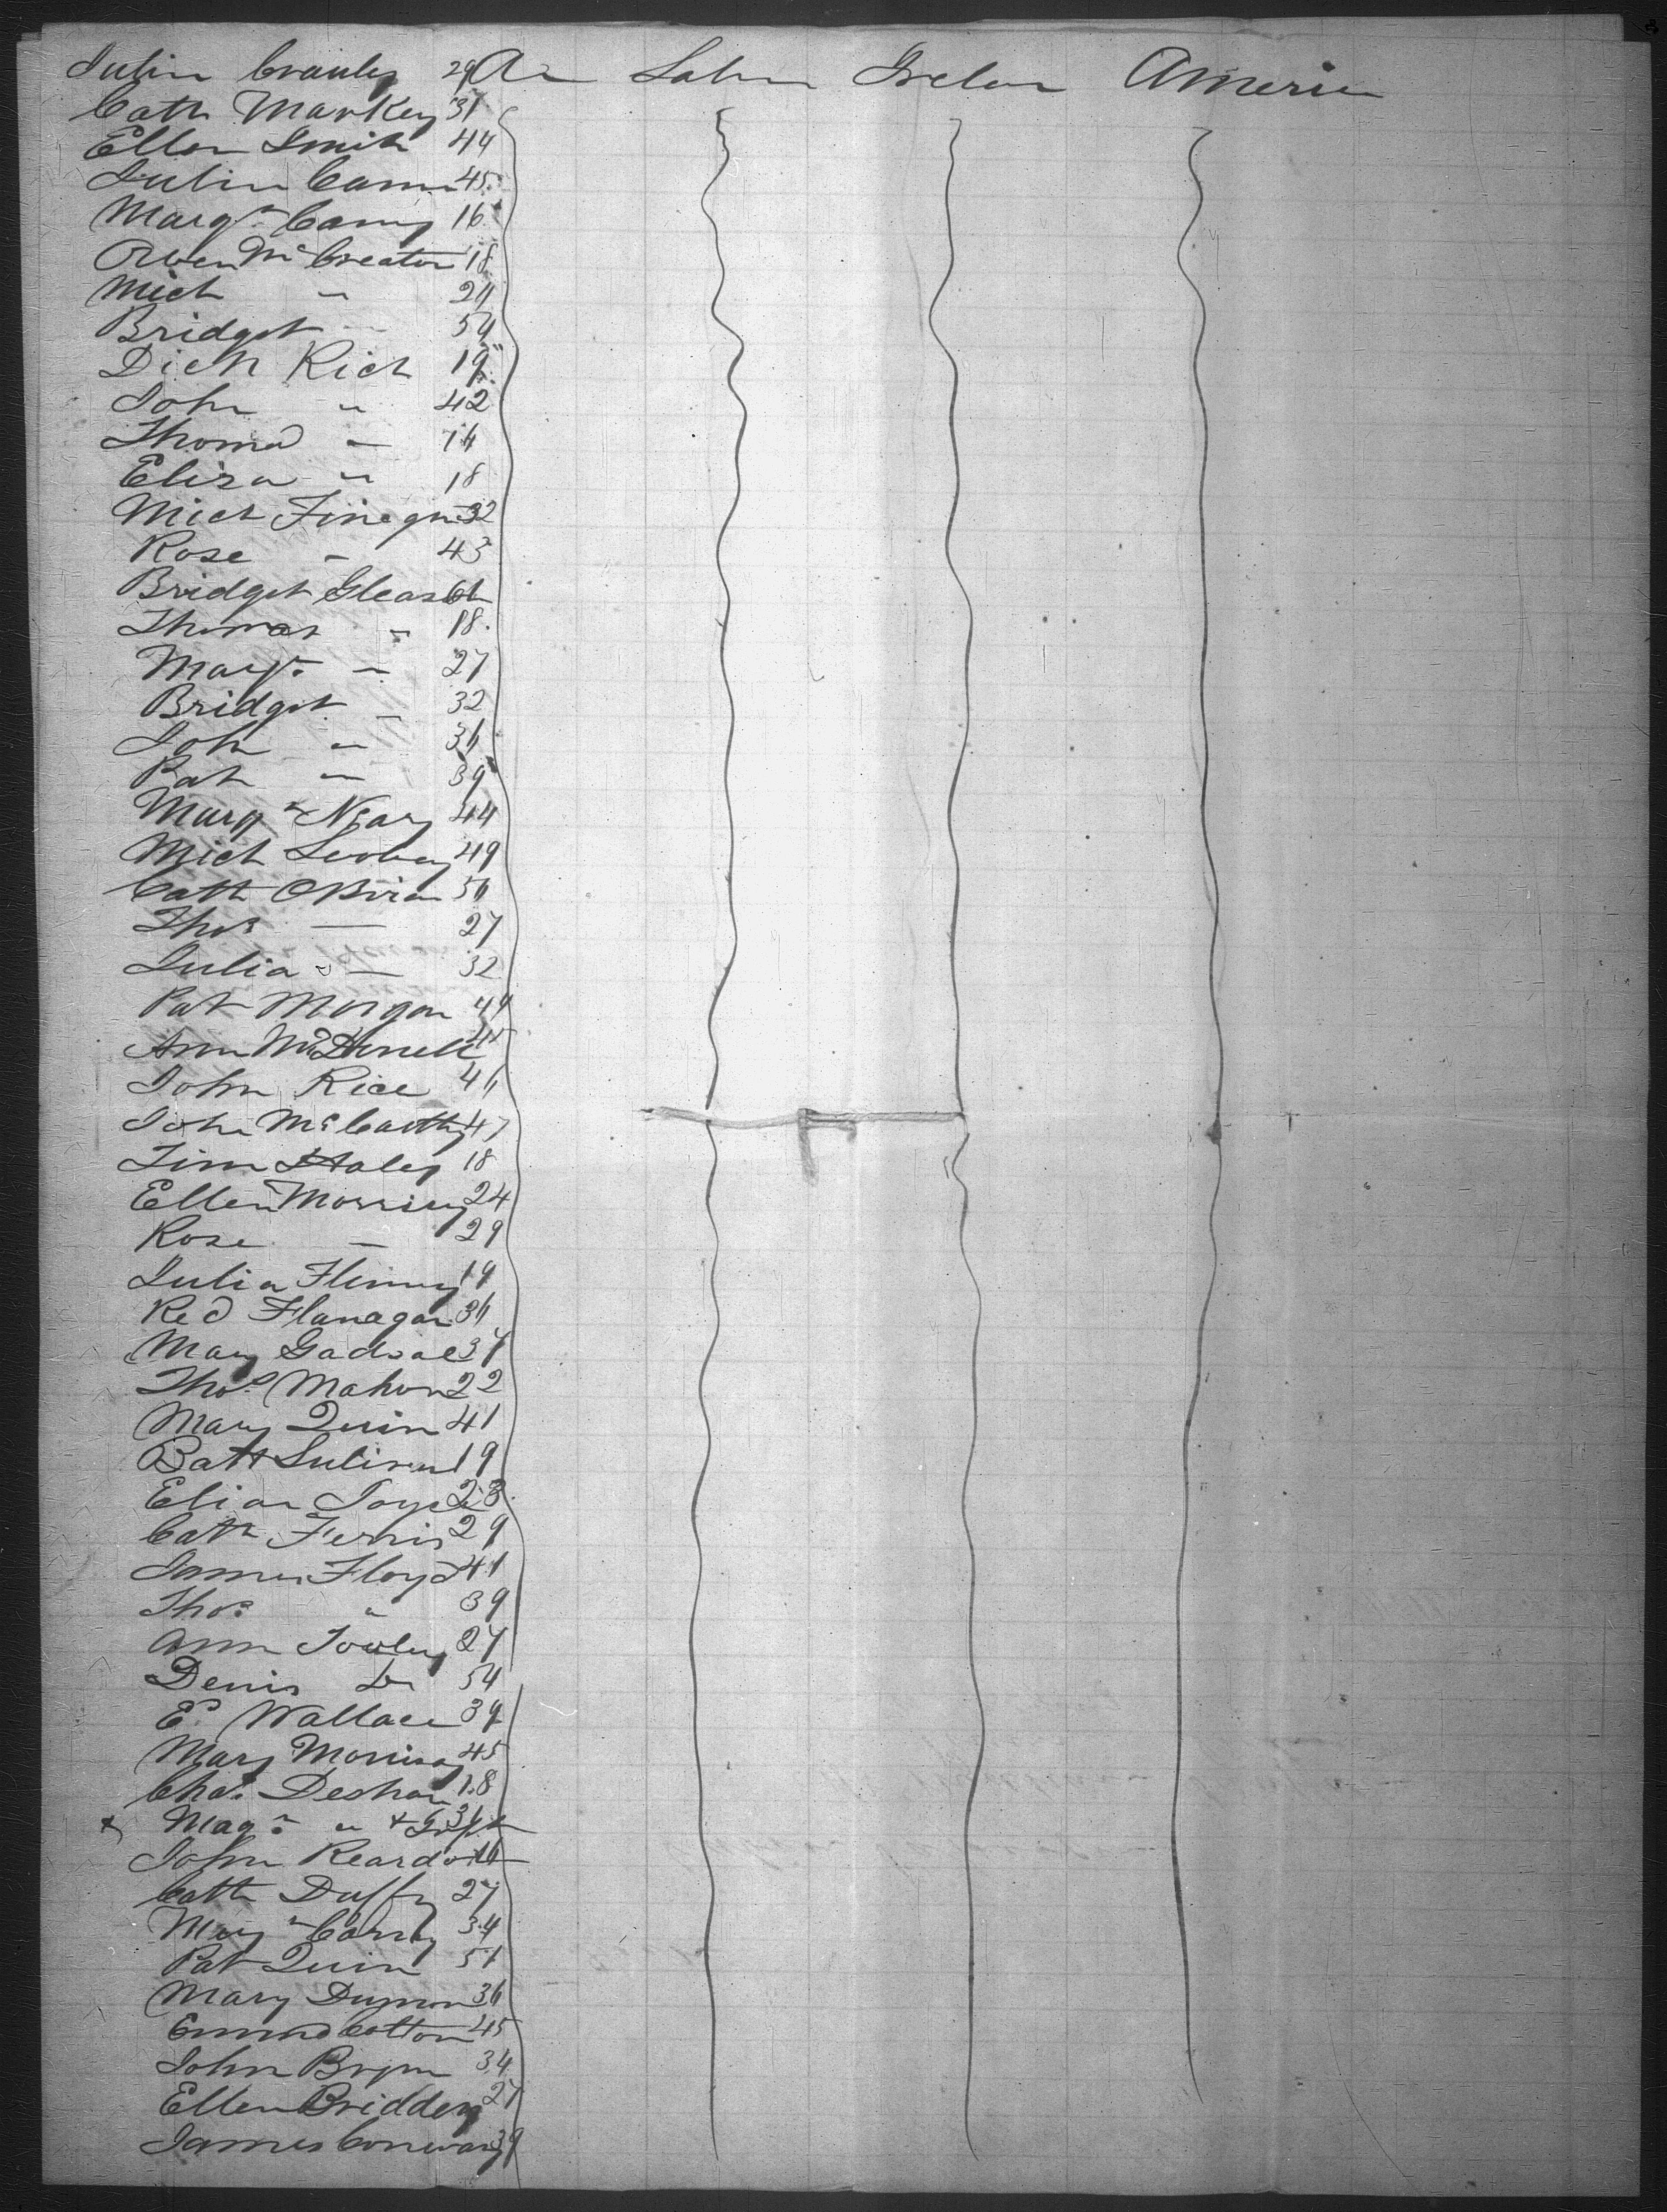 Julia Crauley 29 Ar Labr Ireland America
Cath Markey 31
Ellen Smith 44
Julia 45
Margt Carny 16
Owen McCreator 18
Mich " 24
Bridget " 54
Dick Rich 19
John " 42
Thomas " 14
Eliza " 18
Mich Finegn 32
Rose " 43
Bridget Gleason
Thomas " 18
Margt " 27
Bridget " 32
Joh " 36
Pat " 39
Margt Neary 44
Mich 49
Cath OBrien 56
Thos — 27
Julia — 32
Pat Morgan 44
Ann McDonell 45
John Rice 46
John McCarthy 47
Tim Haley 18
Ellen Morrisey 24
Rose — 29
Julia 19
Red Flanagan 36
Mary 37
Thos Mahon 22
Mary Quin 41
Batt Sulivan 19
Joyce 28
Cath Ferris 29
James Floyd 41
Thos " 39
Ann 27
Denis Do 54
E. Wallace 39
Mary 45
Chas. 18
Mag " &
John Reardon 16
Cath Duffy 27
34
Pat Quin 51
Mary 36
Cotton 45
John 34
Ellen Bridden 27
James Conway 39